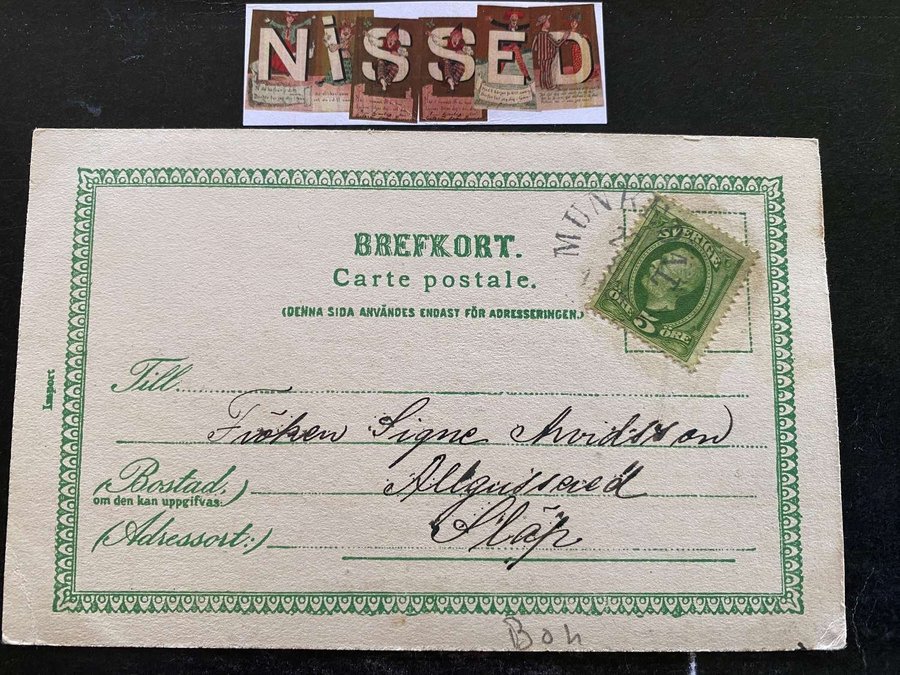 NiSSED
BREFKORT.
Carte postale.
(DENNA SIDA ANVÄNDES ENDAST FÖR ADRESSERINGEN.)
MUNK
SVERIGE
5 ÖRE
ÖRE
Import
Till
Fröken Signe Arvidsson
(Bostad,)
om den kan uppgifvas:
(Adressort:)
Släp
Boh